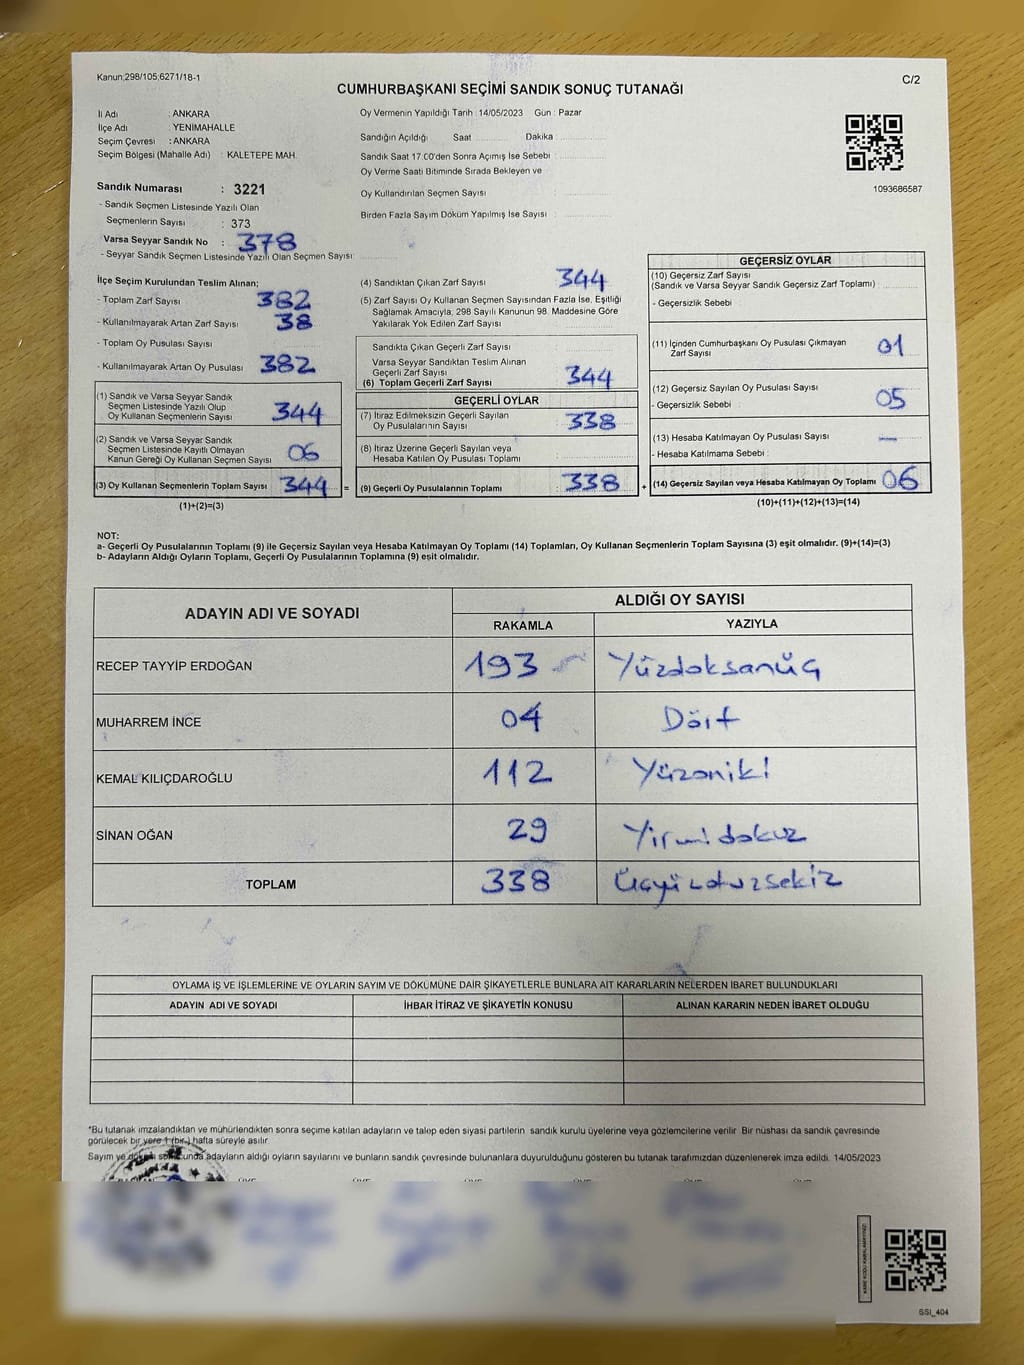 Kanun;298/105;6271/18-1
C/2
CUMHURBAŞKANI SEÇİMİ SANDIK SONUÇ TUTANAĞI
İli Adı : ANKARA
İlçe Adı : YENİMAHALLE
Seçim Çevresi : ANKARA
Seçim Bölgesi (Mahalle Adı) : KALETEPE MAH.
Sandık Numarası : 3221
- Sandık Seçmen Listesinde Yazılı Olan
Seçmenlerin Sayısı : 373
Varsa Seyyar Sandık No : 378
- Seyyar Sandık Seçmen Listesinde Yazılı Olan Seçmen Sayısı:
Oy Vermenin Yapıldığı Tarih : 14/05/2023 Gün : Pazar
Sandığın Açıldığı Saat Dakika :
Sandık Saat 17.00'den Sonra Açımış İse Sebebi :
Oy Verme Saati Bitiminde Sırada Bekleyen ve
Oy Kullandırılan Seçmen Sayısı :
Birden Fazla Sayım Döküm Yapılmış İse Sayısı :
1093686587
İlçe Seçim Kurulundan Teslim Alınan;
- Toplam Zarf Sayısı 382
- Kullanılmayarak Artan Zarf Sayısı 38
- Toplam Oy Pusulası Sayısı
- Kullanılmayarak Artan Oy Pusulası 382
(1) Sandık ve Varsa Seyyar Sandık
Seçmen Listesinde Yazılı Olup
Oy Kullanan Seçmenlerin Sayısı 344
(2) Sandık ve Varsa Seyyar Sandık
Seçmen Listesinde Kayıtlı Olmayan
Kanun Gereği Oy Kullanan Seçmen Sayısı 06
(3) Oy Kullanan Seçmenlerin Toplam Sayısı 344 =
(1)+(2)=(3)
(4) Sandıktan Çıkan Zarf Sayısı 344
(5) Zarf Sayısı Oy Kullanan Seçmen Sayısından Fazla İse, Eşitliği
Sağlamak Amacıyla, 298 Sayılı Kanunun 98. Maddesine Göre
Yakılarak Yok Edilen Zarf Sayısı
Sandıkta Çıkan Geçerli Zarf Sayısı
Varsa Seyyar Sandıktan Teslim Alınan
Geçerli Zarf Sayısı
(6) Toplam Geçerli Zarf Sayısı 344
GEÇERLİ OYLAR
(7) İtiraz Edilmeksizin Geçerli Sayılan
Oy Pusulalarının Sayısı 338
(8) İtiraz Üzerine Geçerli Sayılan veya
Hesaba Katılan Oy Pusulası Toplamı
(9) Geçerli Oy Pusulalarının Toplamı 338 +
GEÇERSİZ OYLAR
(10) Geçersiz Zarf Sayısı
(Sandık ve Varsa Seyyar Sandık Geçersiz Zarf Toplamı)
- Geçersizlik Sebebi :
(11) İçinden Cumhurbaşkanı Oy Pusulası Çıkmayan
Zarf Sayısı 01
(12) Geçersiz Sayılan Oy Pusulası Sayısı 05
- Geçersizlik Sebebi :
(13) Hesaba Katılmayan Oy Pusulası Sayısı —
- Hesaba Katılmama Sebebi :
(14) Geçersiz Sayılan veya Hesaba Katılmayan Oy Toplamı 06
(10)+(11)+(12)+(13)=(14)
NOT:
a- Geçerli Oy Pusulalarının Toplamı (9) ile Geçersiz Sayılan veya Hesaba Katılmayan Oy Toplamı (14) Toplamları, Oy Kullanan Seçmenlerin Toplam Sayısına (3) eşit olmalıdır. (9)+(14)=(3)
b- Adayların Aldığı Oyların Toplamı, Geçerli Oy Pusulalarının Toplamına (9) eşit olmalıdır.
ADAYIN ADI VE SOYADI
ALDIĞI OY SAYISI
RAKAMLA YAZIYLA
RECEP TAYYİP ERDOĞAN 193 Yüzdoksanüç
MUHARREM İNCE 04 Dört
KEMAL KILIÇDAROĞLU 112 Yüzoniki
SİNAN OĞAN 29 Yirmidokuz
TOPLAM 338 Üçyüzotuzsekiz
OYLAMA İŞ VE İŞLEMLERİNE VE OYLARIN SAYIM VE DÖKÜMÜNE DAİR ŞİKAYETLERLE BUNLARA AİT KARARLARIN NELERDEN İBARET BULUNDUKLARI
ADAYIN ADI VE SOYADI İHBAR İTİRAZ VE ŞİKAYETİN KONUSU ALINAN KARARIN NEDEN İBARET OLDUĞU
*Bu tutanak imzalandıktan ve mühürlendikten sonra seçime katılan adayların ve talep eden siyasi partilerin sandık kurulu üyelerine veya gözlemcilerine verilir. Bir nüshası da sandık çevresinde
görülecek bir yere 1 (bir) hafta süreyle asılır.
Sayım ve döküm sonucunda adayların aldığı oyların sayılarını ve bunların sandık çevresinde bulunanlara duyurulduğunu gösteren bu tutanak tarafımızdan düzenlenerek imza edildi. 14/05/2023
SSI_404